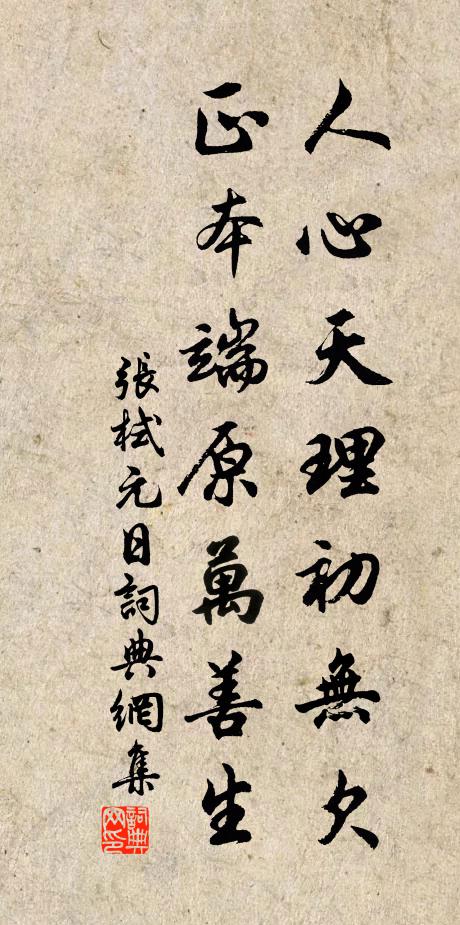 人心天理初無欠
正本端原萬善生
張栻元日詞典網集
詞典網印